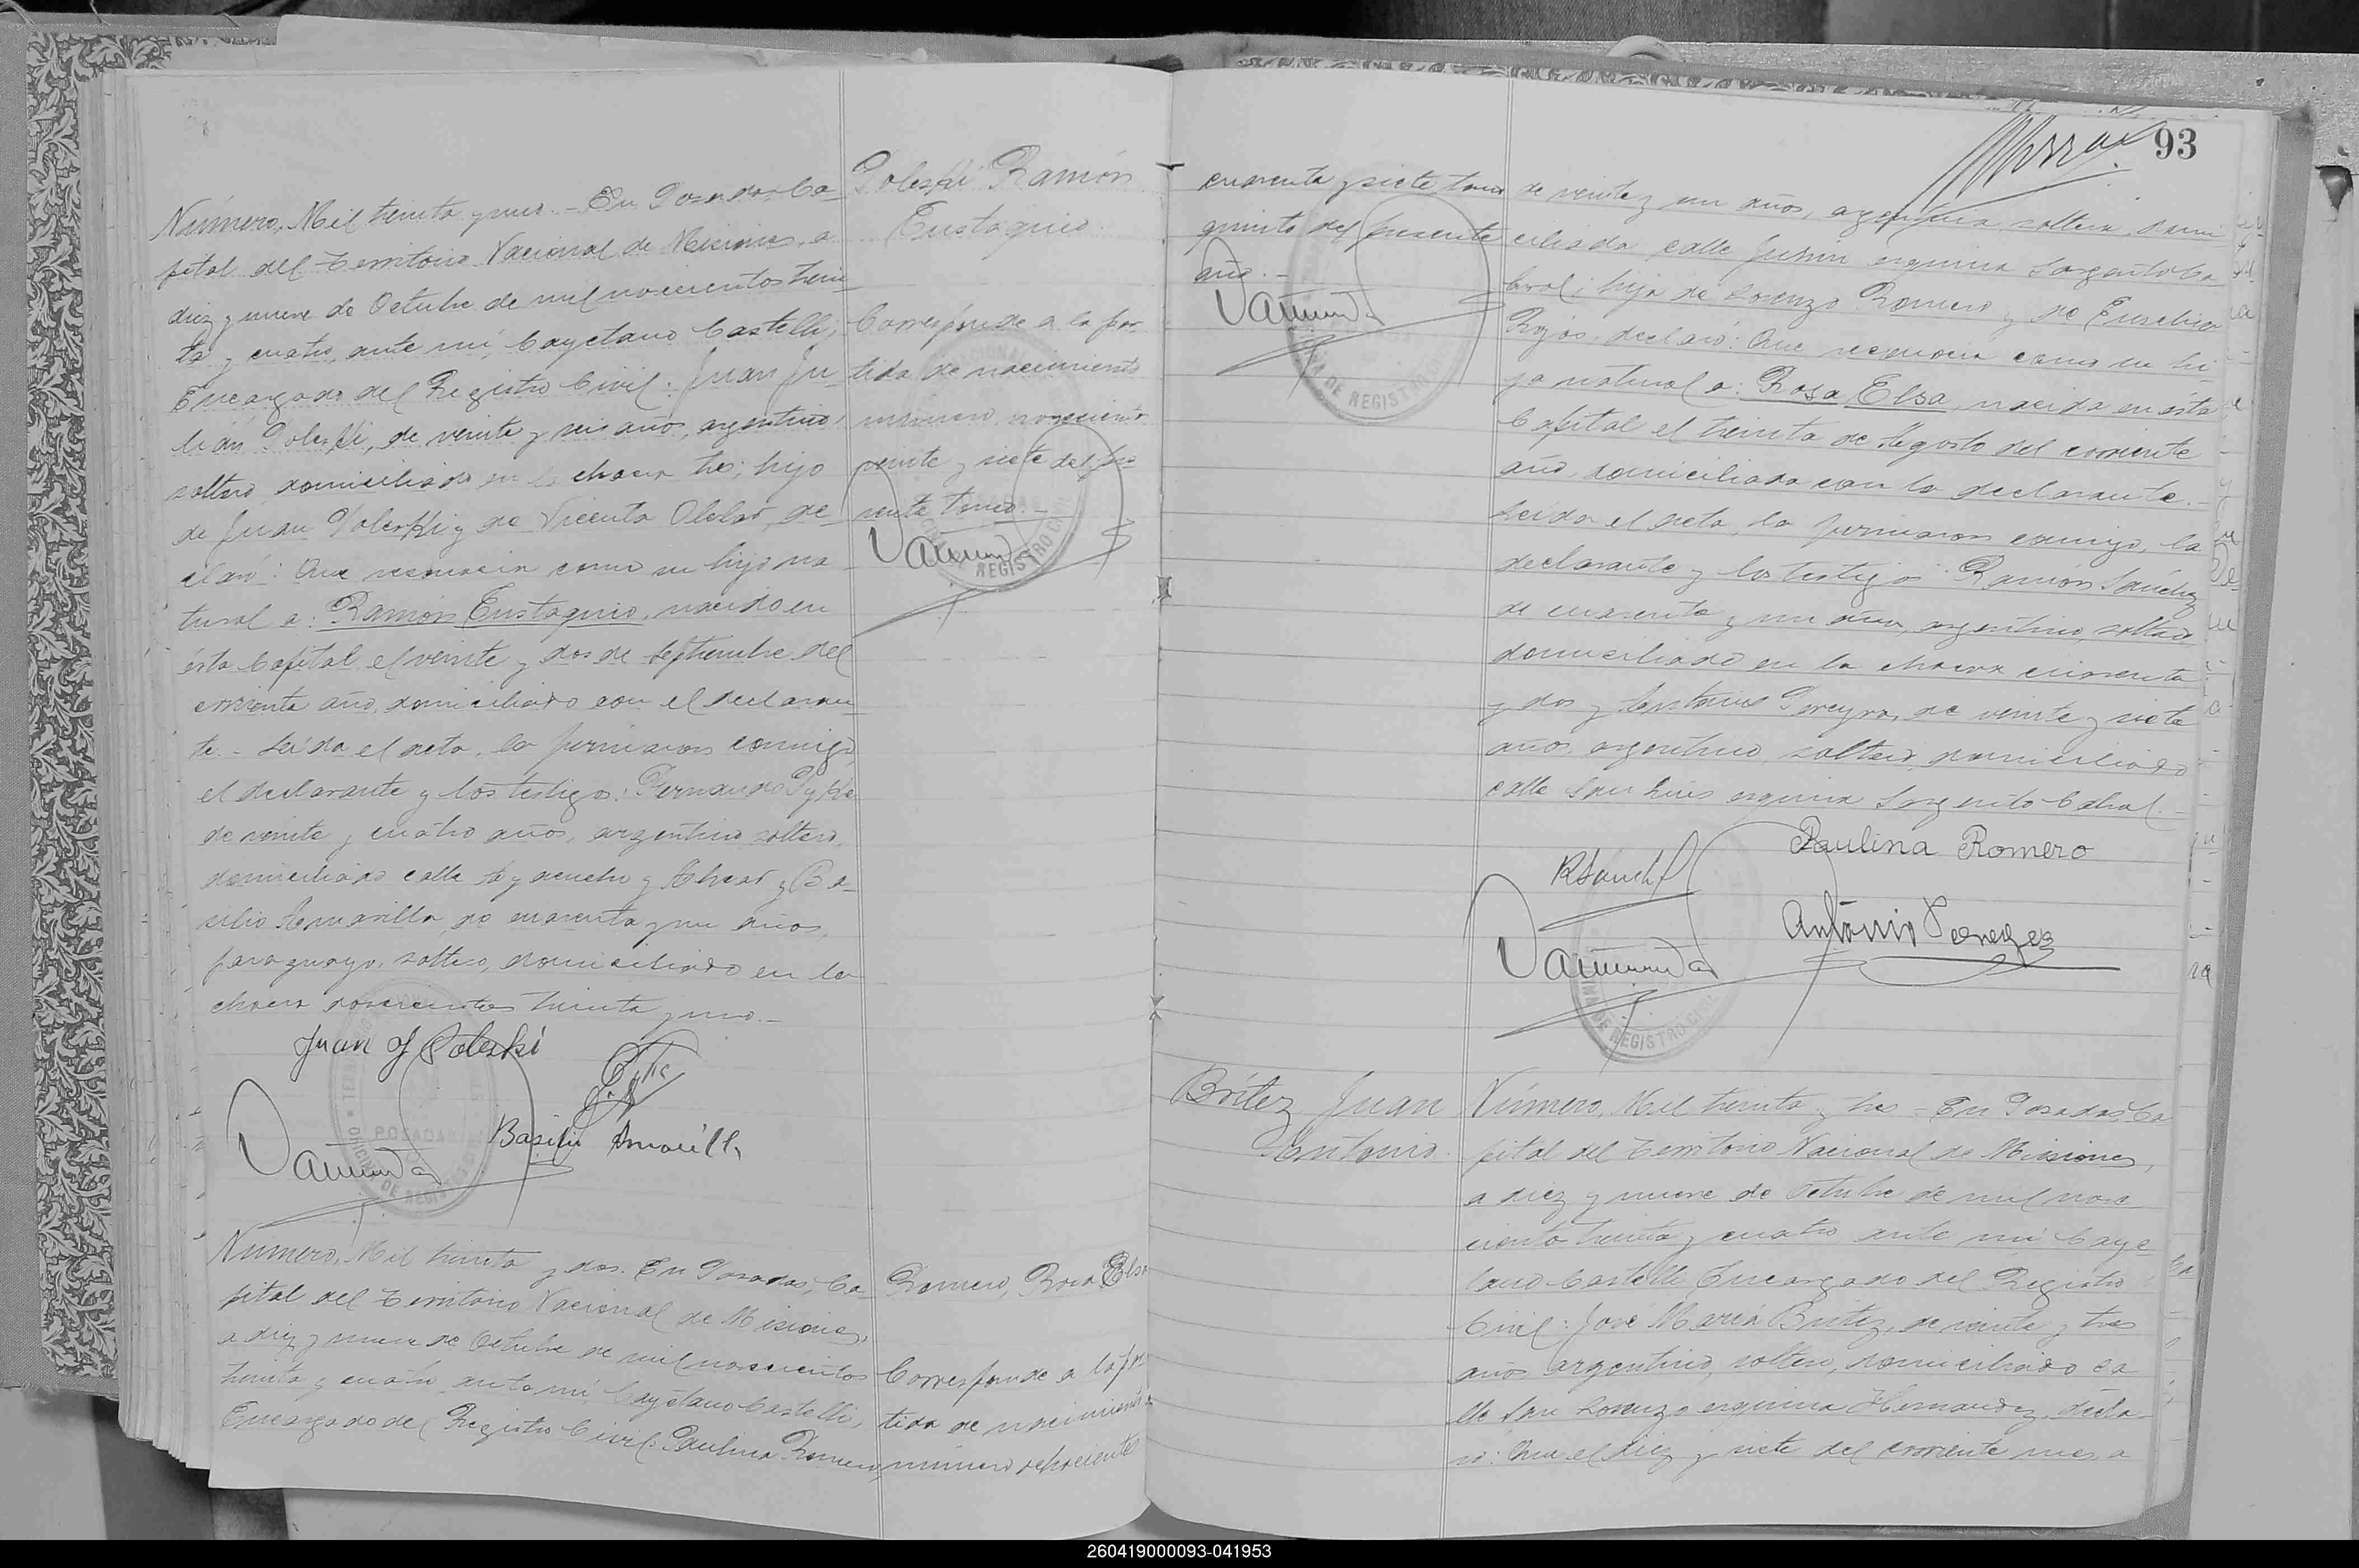 Número, Mil treinta y uno. - En Posadas, Ca-
pital del Territorio Nacional de Misiones, a
diez y nueve de Octubre de mil novecientos trein-
ta y cuatro, ante mí, Cayetano Castelli,
Encargado del Registro Civil: Juan Ju-
lián Poleski, de veinte y seis años, argentino,
soltero, domiciliado en la chacra tres; hijo
de Juan Poleski y de Vicenta, de-
claró: Que reconocía como su hijo na-
tural a: Ramón Eustaquio, nacido en
ésta Capital el veinte y dos de Septiembre del
corriente año, domiciliado con el declaran-
te. - Leída el acta, la firmaron conmigo,
el declarante y los testigos: Fernando
de veinte y cuatro años, argentino, soltero,
domiciliado calle Ayacucho y Alvear y Ba-
silio Amarilla, de cuarenta y un años,
paraguayo, soltero, domiciliado en la
chacra doscientos treinta y uno. -
Juan J Poleski
Basilio Amarilla
POSADAS
Poleski Ramón
Eustaquio.
Corresponde a la par-
tida de nacimiento
número novecientos
veinte y siete del pre-
sente tomo. -
REGISTRO CIVIL
Número, Mil treinta y dos. En Posadas, Ca-
pital del Territorio Nacional de Misiones,
a diez y nueve de Octubre de mil novecientos
treinta y cuatro, ante mí, Cayetano Castelli,
Encargado del Registro Civil: Paulina Romero,
Romero, Rosa Elsa
Corresponde a la par-
tida de nacimiento
número ochocientos
93
cuarenta y siete tomo
quinto del presente
año. -
DE REGISTRO
de veinte y un años, argentina, soltera, domi-
ciliada calle Junín esquina Sargento Ca-
bral; hija de Lorenzo Romero y de
Rojas, declaró: Que reconocía como su hi-
ja natural a: Rosa Elsa, nacida en ésta
Capital el treinta de Agosto del corriente
año, domiciliada con la declarante. -
Leída el acta, la firmaron conmigo, la
declarante y los testigos: Ramón Sánchez
de cuarenta y un años, argentino, soltero
domiciliado en la chacra cuarenta
y dos y Antonio Pereyra, de veinte y siete
años, argentino, soltero, domiciliado
calle San Luis esquina Sargento Cabral. -
Paulina Romero
R Sánchez
Antonio
DE REGISTRO CIVIL
Brítez Juan
Antonio.
Número, Mil treinta y tres - En Posadas, Ca-
pital del Territorio Nacional de Misiones,
a diez y nueve de Octubre de mil nove-
ciento treinta y cuatro ante mí Caye-
tano Castelli Encargado del Registro
Civil: José María Brítez, de veinte y tres
años argentino, soltero, domiciliado ca-
lle San Lorenzo esquina Hernandez, decla-
ró: Que el diez y siete del corriente mes, a
260419000093-041953